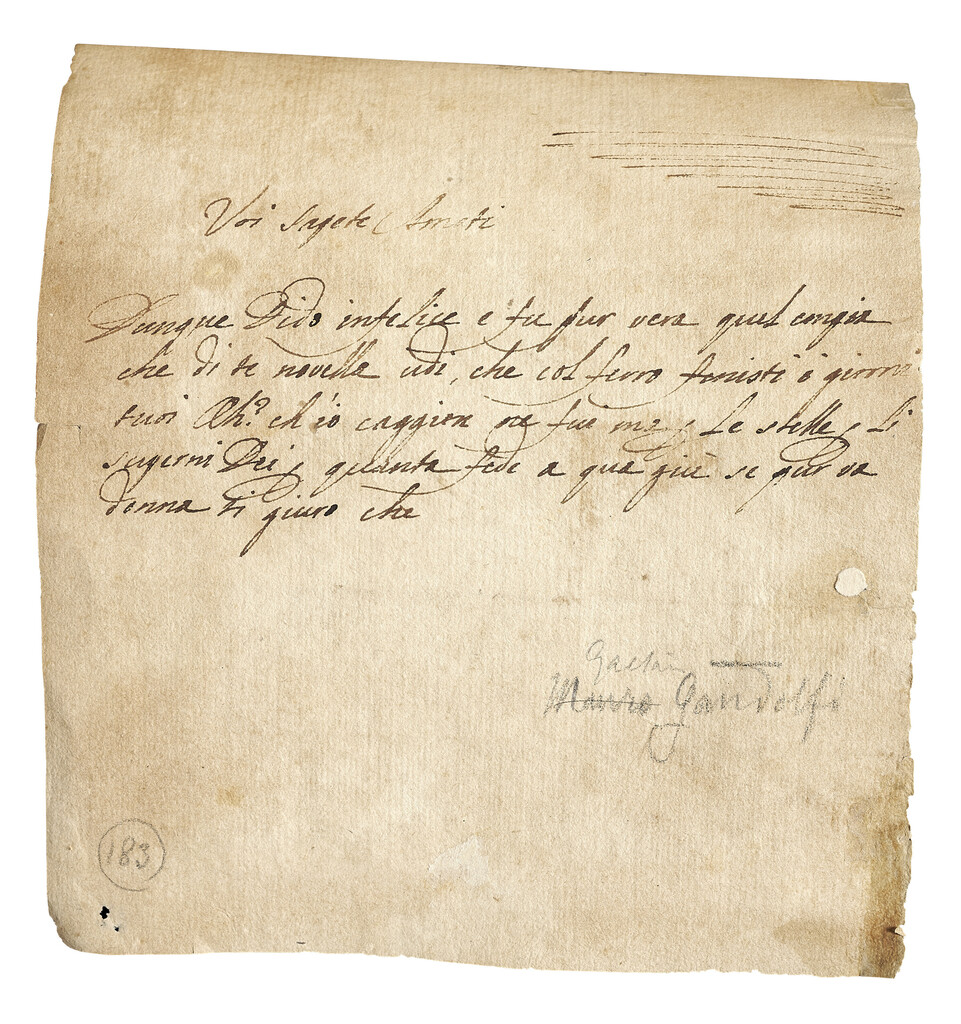 Voi sapete Amati
Dunque Dido infelice e fu pur vera quel empia
che di te novella udi, che col ferro finisti i giorni
tuoi Ah? ch'io caggion ne fui ma, Le stelle, Li
superni Dei, quanta fede a qua giù se pur va
donna ti giuro che
Gaetan
Mauro Gandolfi
183